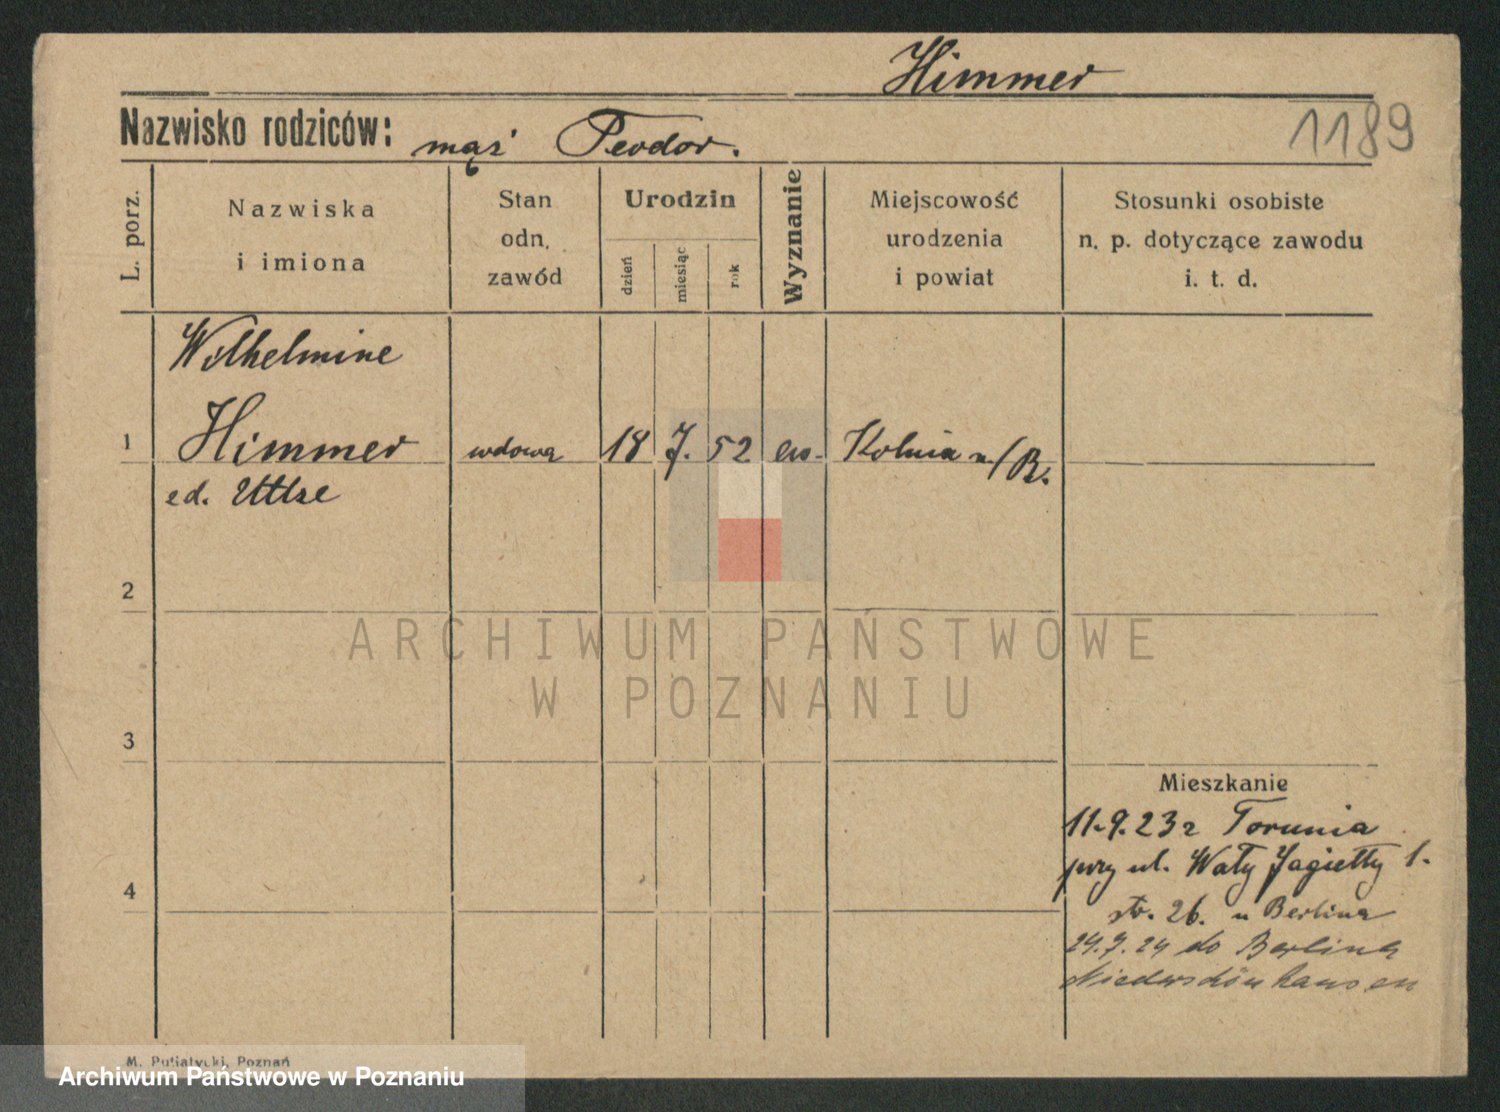 Himmer
Nazwisko rodziców: mąż Teodor.
1189
L. porz.
Nazwiska
i imiona
Stan
odn.
zawód
Urodzin
dzień
miesiąc
rok
Wyznanie
Miejscowość
urodzenia
i powiat
Stosunki osobiste
n. p. dotyczące zawodu
i. t. d.
Wilhelmine
1 Himmer wdowa 18 7. 52 ew.
2
3
4
Mieszkanie
11.9.23 z Torunia
przy ul. Wały Jagiełły 1.
str. 26. u Berlina
24.7.24 do Berlina
ARCHIWUM PAŃSTWOWE
W POZNANIU
M. Putiatycki, Poznań
Archiwum Państwowe w Poznaniu